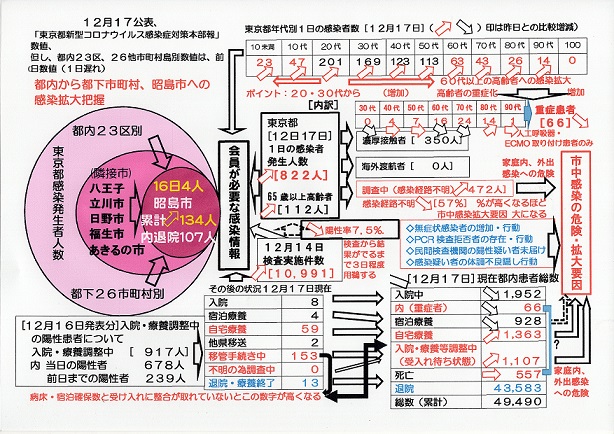 12月17公表、
「東京都新型コロナウイルス感染症対策本部報」
数値、
但し、都内23区、26他市町村島別数値は、前
日数値(1日遅れ)
都内から都下市町村、昭島市への
感染拡大把握
東京都年代別1日の感染者数[12月17日] ( )印は昨日との比較増減)
10未満 10代 20代 30代 40代 50代 60代 70代 80代 90代 100
23 47 201 169 123 113 63 43 26 14 0
60代以上の高齢者への感染拡大
ポイント:20・30代から (増加) 高齢者の重症化 (増加)
【内訳】
30代 40代 50代 60代 70代 80代 90代
0 4 7 16 24 14 1
重症患者
[66]
人工呼吸器・
ECMO取り付け患者のみ
東京都
[12月17日]
1日の感染者
発生人数
[822人]
65歳以上高齢者
[112人]
濃厚接触者 [350人]
海外渡航者 [0人]
調査中(感染経路不明) 472人]
感染経路不明 [57%] %が高くなるほど
市中感染拡大要因 大になる
家庭内、外出
感染への危険
市中感染の危険・拡大要因
都内23区別
東京都感染発生者人数
(隣接市)
八王子
立川市
日野市
福生市
あきるの市
16日4人
昭島市
累計 134人
内退院107人
都下26市町村別
会員が必要な感染情報
陽性率7.5%
12月14日
検査実施件数
[10,991]
検査から
結果がでる
まで3日程度
用する
◇無症状感染者の増加・行動
◇PCR検査拒否者の存在・行動
◇民間検査機関の陽性疑い者未届け
◇感染疑い者の体調不良隠し行動
その後の状況12月17日現在
入院 8
宿泊療養 4
自宅療養 59
他県移送 2
移管手続き中 153
不明の為調査中 0
退院・療養終了 13
[12月17日]現在都内患者総数
入院中 1,952
内(重症者) 66
宿泊療養 928
自宅療養 1,363
入院・療養等調整中
(受入れ待ち状態) 1,107
死亡 557
退院 43,583
総数(累計) 49,490
?
家庭内、外
出感染者へ
の危険
[12月16日発表分]入院・療養調整中
の陽性患者について
入院・療養調整中 [917人]
内 当日の陽性者 678人
前日までの陽性者 239人
病床・宿泊確保数と受け入れに整合が取れていないとこの数字が高くなる